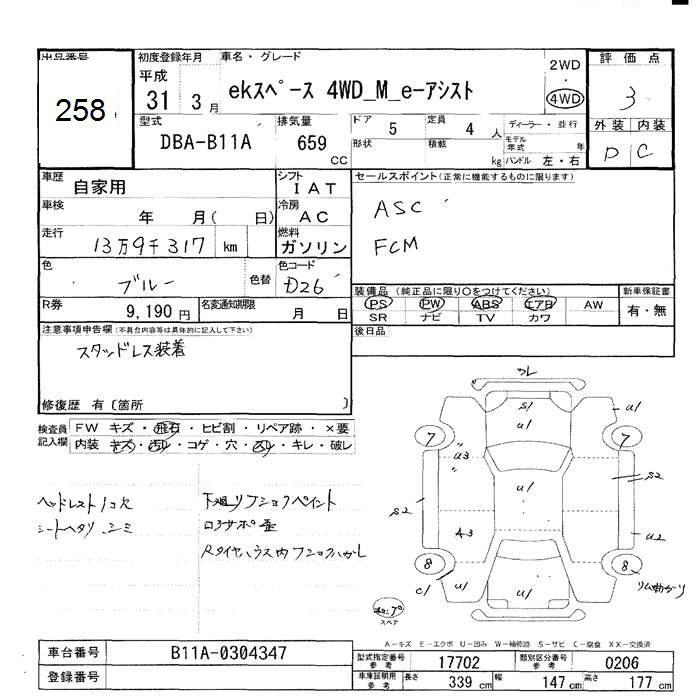 出品番号
258
初度登録年月
平成
31 3 月
車名・グレード
ekスペース 4WD_M_e-アシスト
2WD
・
4WD
評価点
3
外装 内装
D C
型式
DBA-B11A
排気量
659
CC
ドア
5
定員
4 人
ディーラー・並行
モデル年式 年
形状
積載
kg
ハンドル 左・右
車歴
自家用
シフト
IAT
車検
年 月( 日)
冷房
AC
走行
13万9千317 km
燃料
ガソリン
色
ブルー
色替
色コード
D26
R券
9,190 円
名変通知期限
月 日
セールスポイント(正常に機能するものに限ります)
ASC
FCM
装備品 (純正品に限り○をつけてください)
PS PW ABS エアB AW
SR ナビ TV カワ
新車保証書
有・無
後日品
注意事項申告欄(不具合内容等は具体的に記入して下さい)
スタッドレス装着
修復歴 有〔箇所 〕
検査員記入欄
FW キズ・飛石・ヒビ割・リペア跡・×要
内装 キズ・汚れ・コゲ・穴・スレ・キレ・破レ
ヘッドレスト1コ欠
シートヘタリ、シミ
下廻リフショクペイント
ロアサポ歪
Rタイヤハウス内フショクハガレ
スレ
S1
U1
U1
7
7
U3
U1
S2
S2
A3
U2
8
8
C1
U1
U1
U1
リム曲がり
スペア
A-キズ E-エクボ U-凹み W-補修跡 S-サビ C-腐食 XX-交換済
車台番号
B11A-0304347
登録番号
型式指定番号
参考
17702
類別区分番号
参考
0206
車庫証明用
参考
長さ 339 cm
幅 147 cm
高さ 177 cm